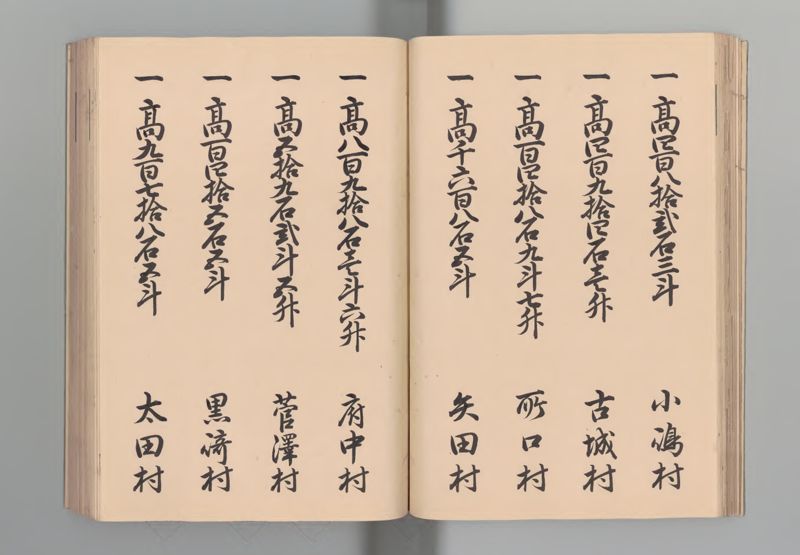 一 高四百八拾弐石三斗 小嶋村
一 高四百九拾四石壱升 古城村
一 高百四拾八石九斗七升 所口村
一 高千六百八石五斗 矢田村
一 高八百九拾八石壱斗六升 府中村
一 高五拾九石弐斗五升 菅澤村
一 高百四拾五石五斗 黒崎村
一 高九百七拾八石五斗 太田村